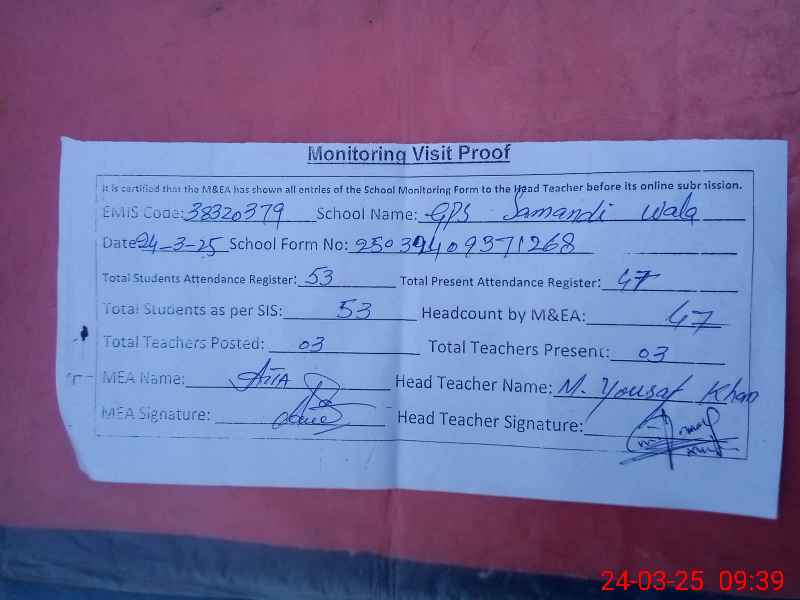 Monitoring Visit Proof
It is certified that the M&EA has shown all entries of the School Monitoring Form to the Head Teacher before its online submission.
EMIS Code: 38320379 School Name: GPS Samandi wala
Date 24-3-25 School Form No: 25039409371268
Total Students Attendance Register: 53 Total Present Attendance Register: 47
Total Students as per SIS: 53 Headcount by M&EA: 47
Total Teachers Posted: 03 Total Teachers Present: 03
MEA Name: Head Teacher Name: M. Yousaf Khan
MEA Signature: Head Teacher Signature:
24-03-25 09:39